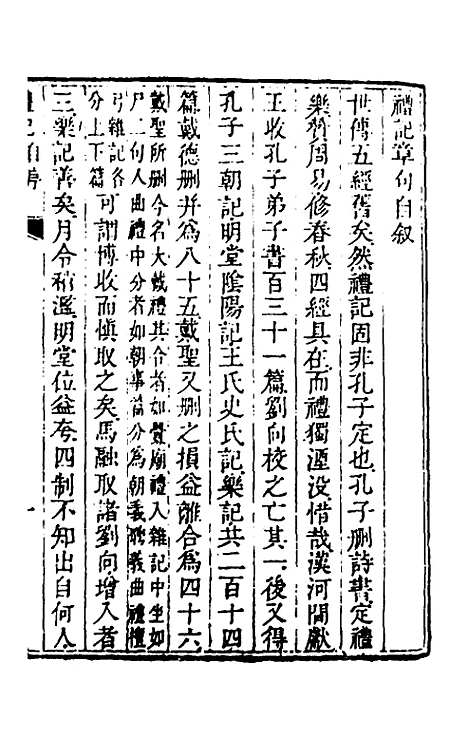 禮記章句自叙
世傳五經舊矣然禮記固非孔子定也孔子删詩書定禮
樂贊周易修春秋四經具在而禮獨湮没惜哉漢河間獻
王收孔子弟子書百三十一篇劉向校之亡其一後又得
孔子三朝記明堂隂陽記王氏史氏記樂記共二百十四
篇戴德删并爲八十五戴聖又删之損益離合爲四十六
戴聖所删今名大戴禮其合者如釁廟禮入雜記中坐如
尸二句入曲禮中分者如朝事篇分爲朝義聘義曲禮檀
弓雜記各
分上下篇
可謂博收而慎取之矣馬融取諸劉向增入者
三樂記善矣月令稍濫明堂位益夸四制不知出自何人
一